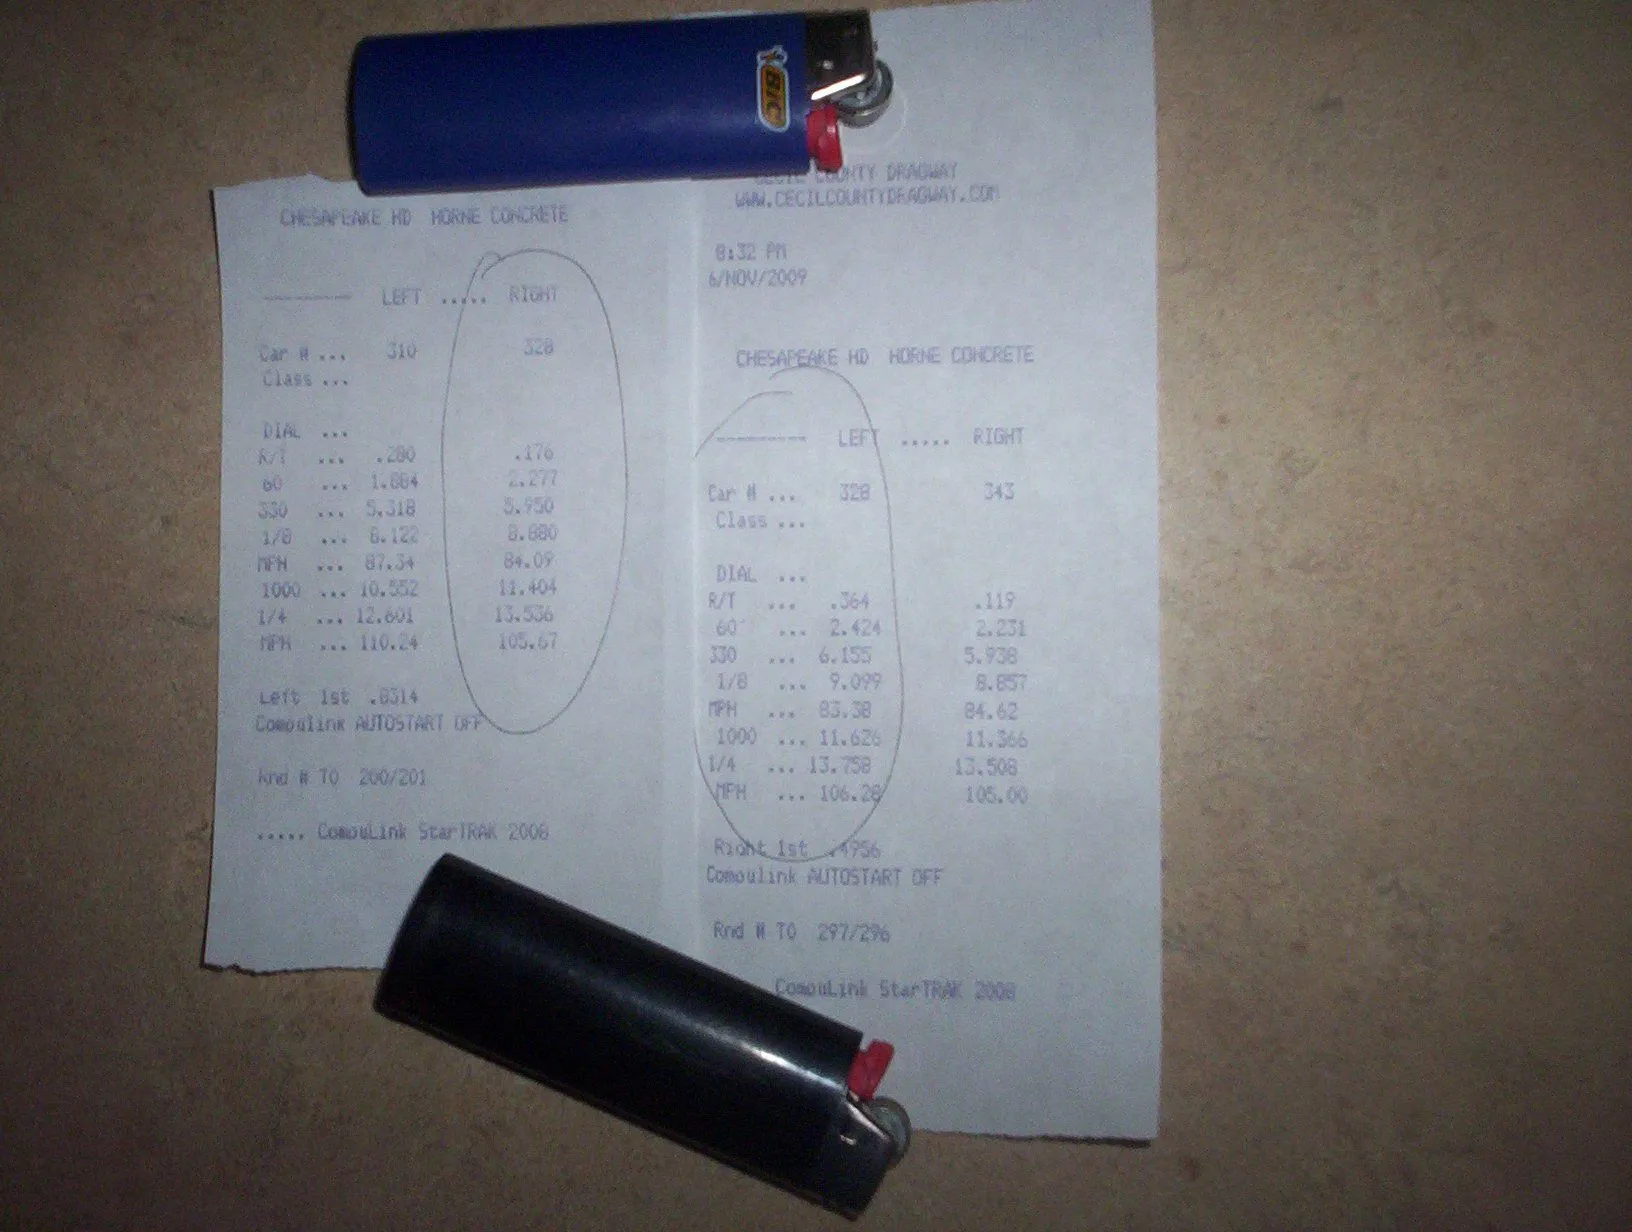 BIC
CHESAPEAKE HD HORNE CONCRETE
--------- LEFT ..... RIGHT
Car # ... 310 328
Class ...
DIAL ...
R/T ... .280 .176
60 ... 1.884 2.277
330 ... 5.318 5.950
1/8 ... 8.122 8.880
MPH ... 87.34 84.09
1000 ... 10.552 11.404
1/4 ... 12.601 13.536
MPH ... 110.24 105.67
Left 1st .8314
Compulink AUTOSTART OFF
Rnd # TO 200/201
..... CompuLink StarTRAK 2008
CECIL COUNTY DRAGWAY
WWW.CECILCOUNTYDRAGWAY.COM
8:32 PM
6/NOV/2009
CHESAPEAKE HD HORNE CONCRETE
--------- LEFT ..... RIGHT
Car # ... 328 343
Class ...
DIAL ...
R/T ... .364 .119
60' ... 2.424 2.231
330 ... 6.155 5.938
1/8 ... 9.099 8.857
MPH ... 83.38 84.62
1000 ... 11.626 11.366
1/4 ... 13.758 13.508
MPH ... 106.28 105.00
Right 1st .4956
Compulink AUTOSTART OFF
Rnd # TO 297/296
CompuLink StarTRAK 2008